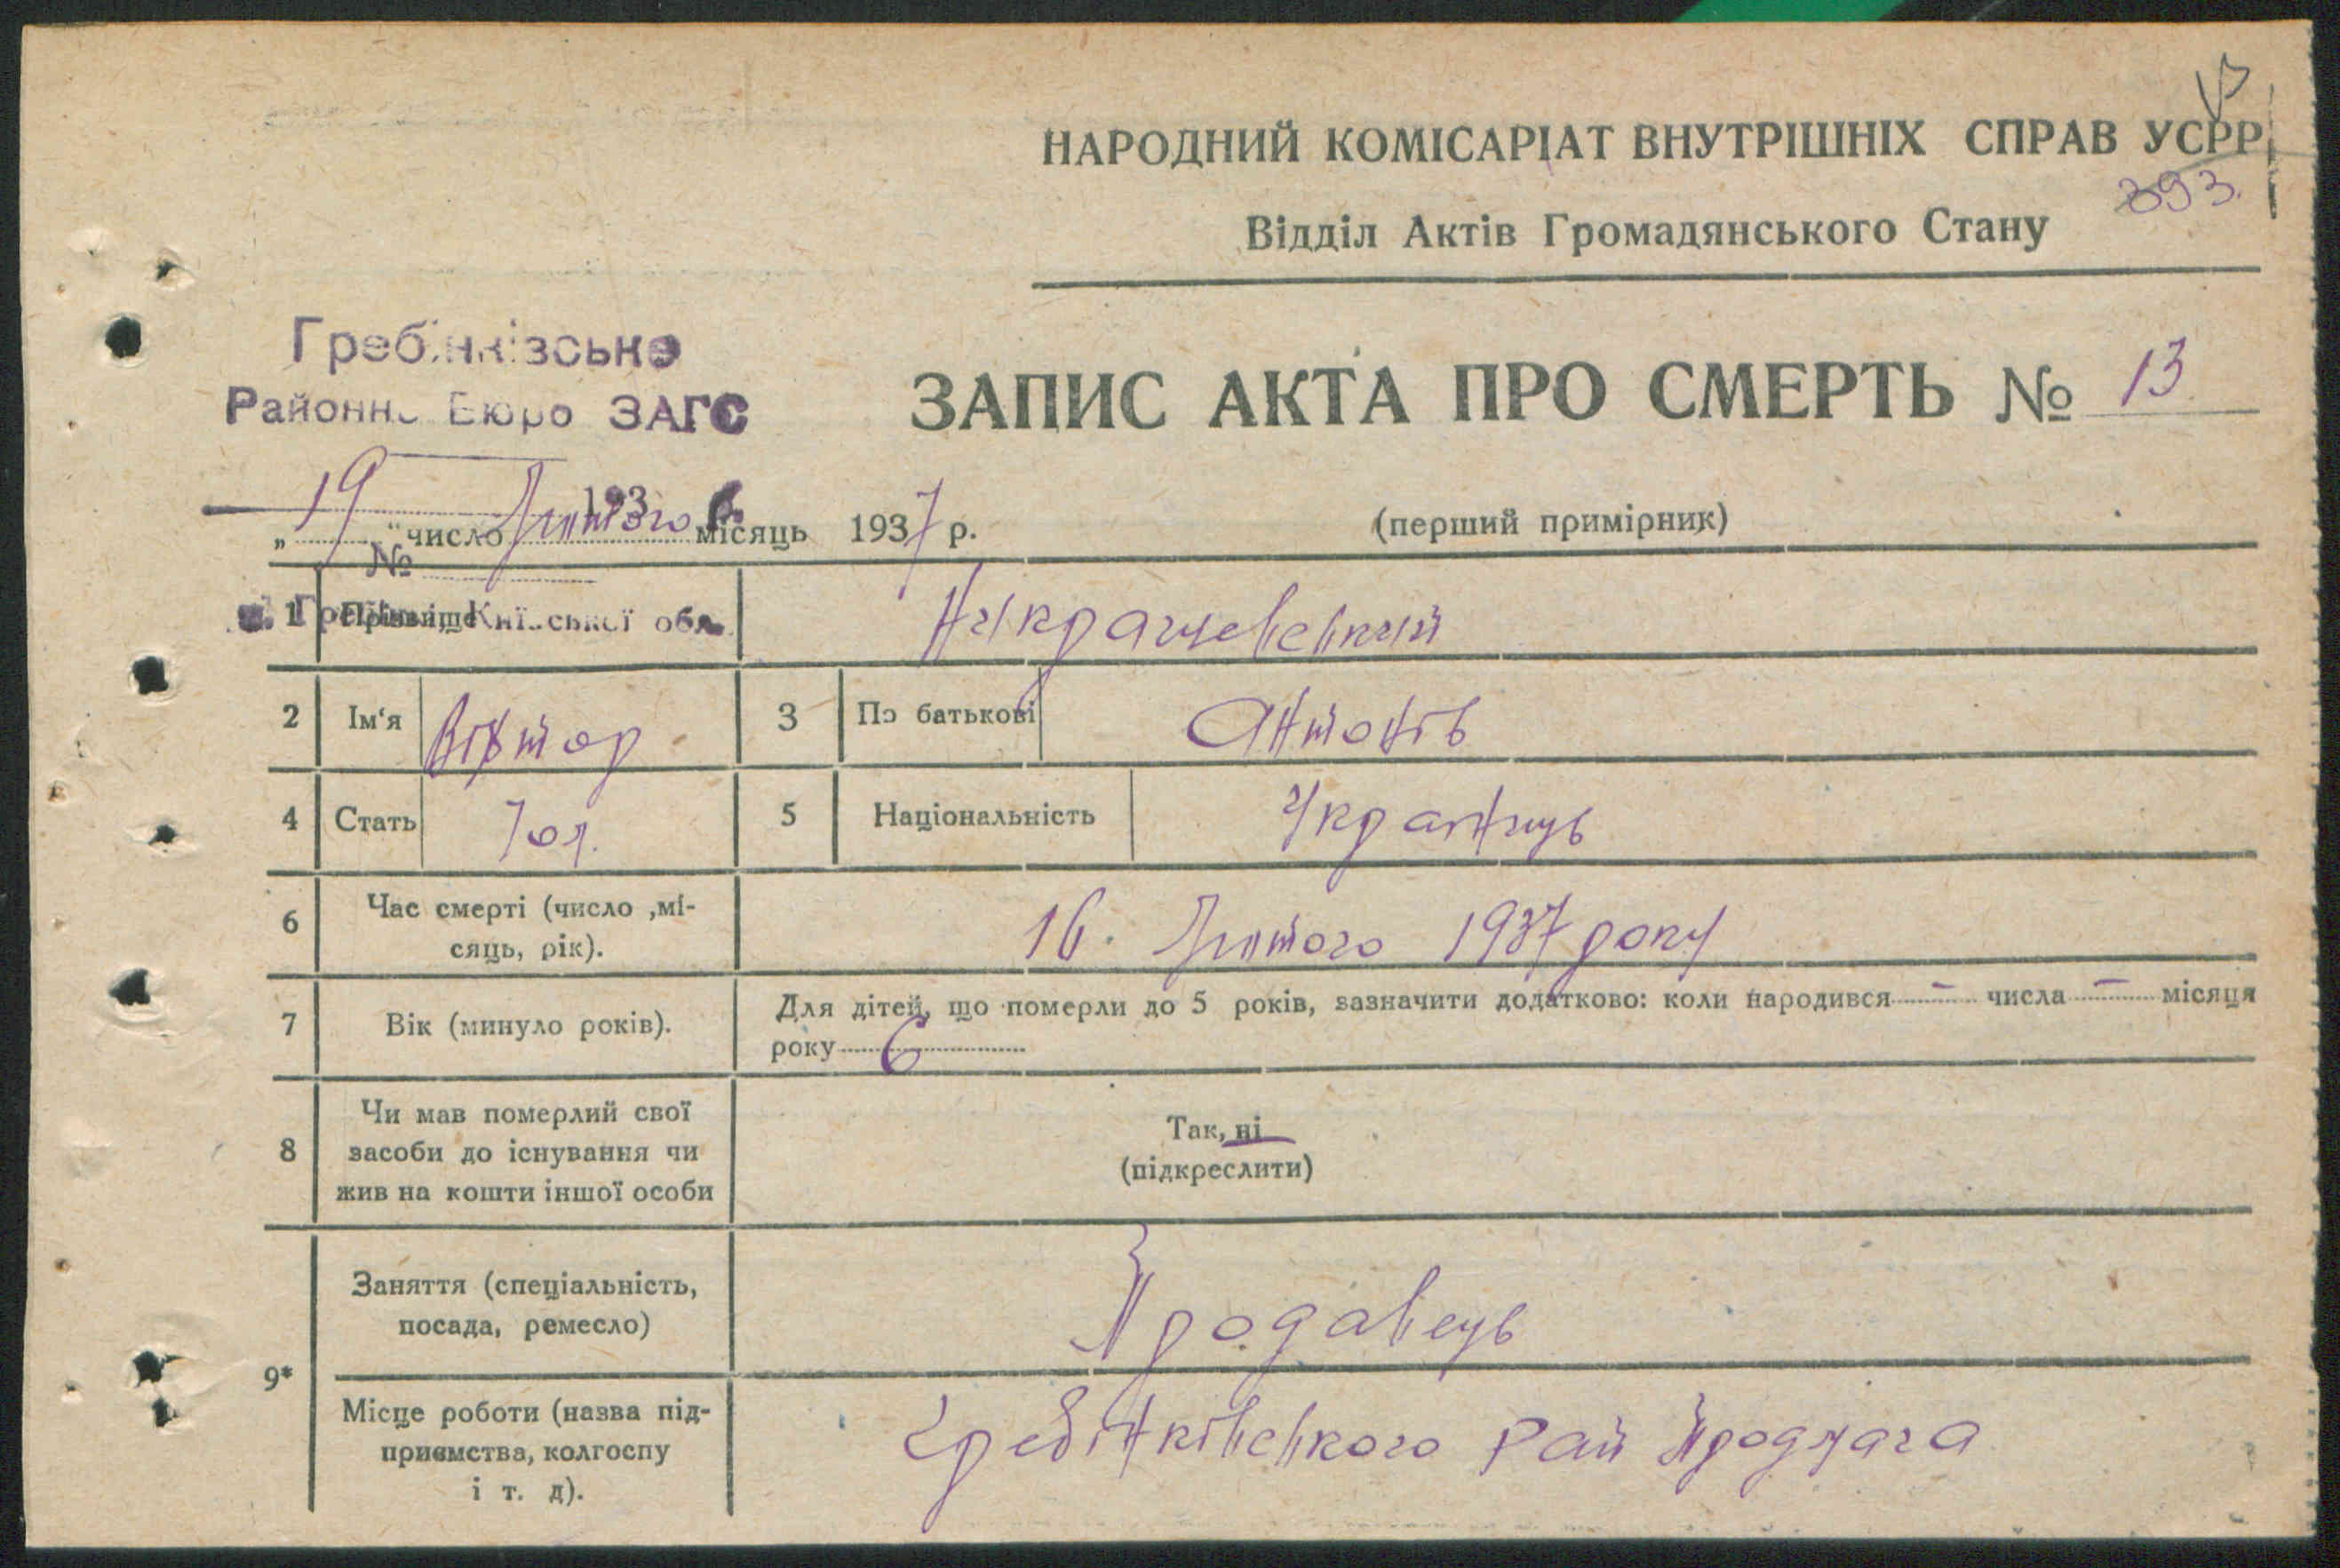 НАРОДНИЙ КОМІСАРІАТ ВНУТРІШНІХ СПРАВ УСРР
393.
Відділ Актів Громадянського Стану
Гребінківське
Районне Бюро ЗАГС
ЗАПИС АКТА ПРО СМЕРТЬ № 13
193 р.
„19“ число Лютого місяць 1937 р.
(перший примірник)
№
Київської обл.
1 Прізвище
2 Ім‘я Віктор 3 По батькові Антонів
4 Стать Чол. 5 Національність Українець
6 Час смерті (число ,мі-
сяць, рік). 16. Лютого 1937 року
7 Вік (минуло років). Для дітей, що померли до 5 років, зазначити додатково: коли народився - числа - місяця
року 6
8 Чи мав померлий свої
засоби до існування чи
жив на кошти іншої особи
Так, ні
(підкреслити)
9* Заняття (спеціальність,
посада, ремесло) Продавець
Місце роботи (назва під-
приємства, колгоспу
і т. д). Гребінківського Рай